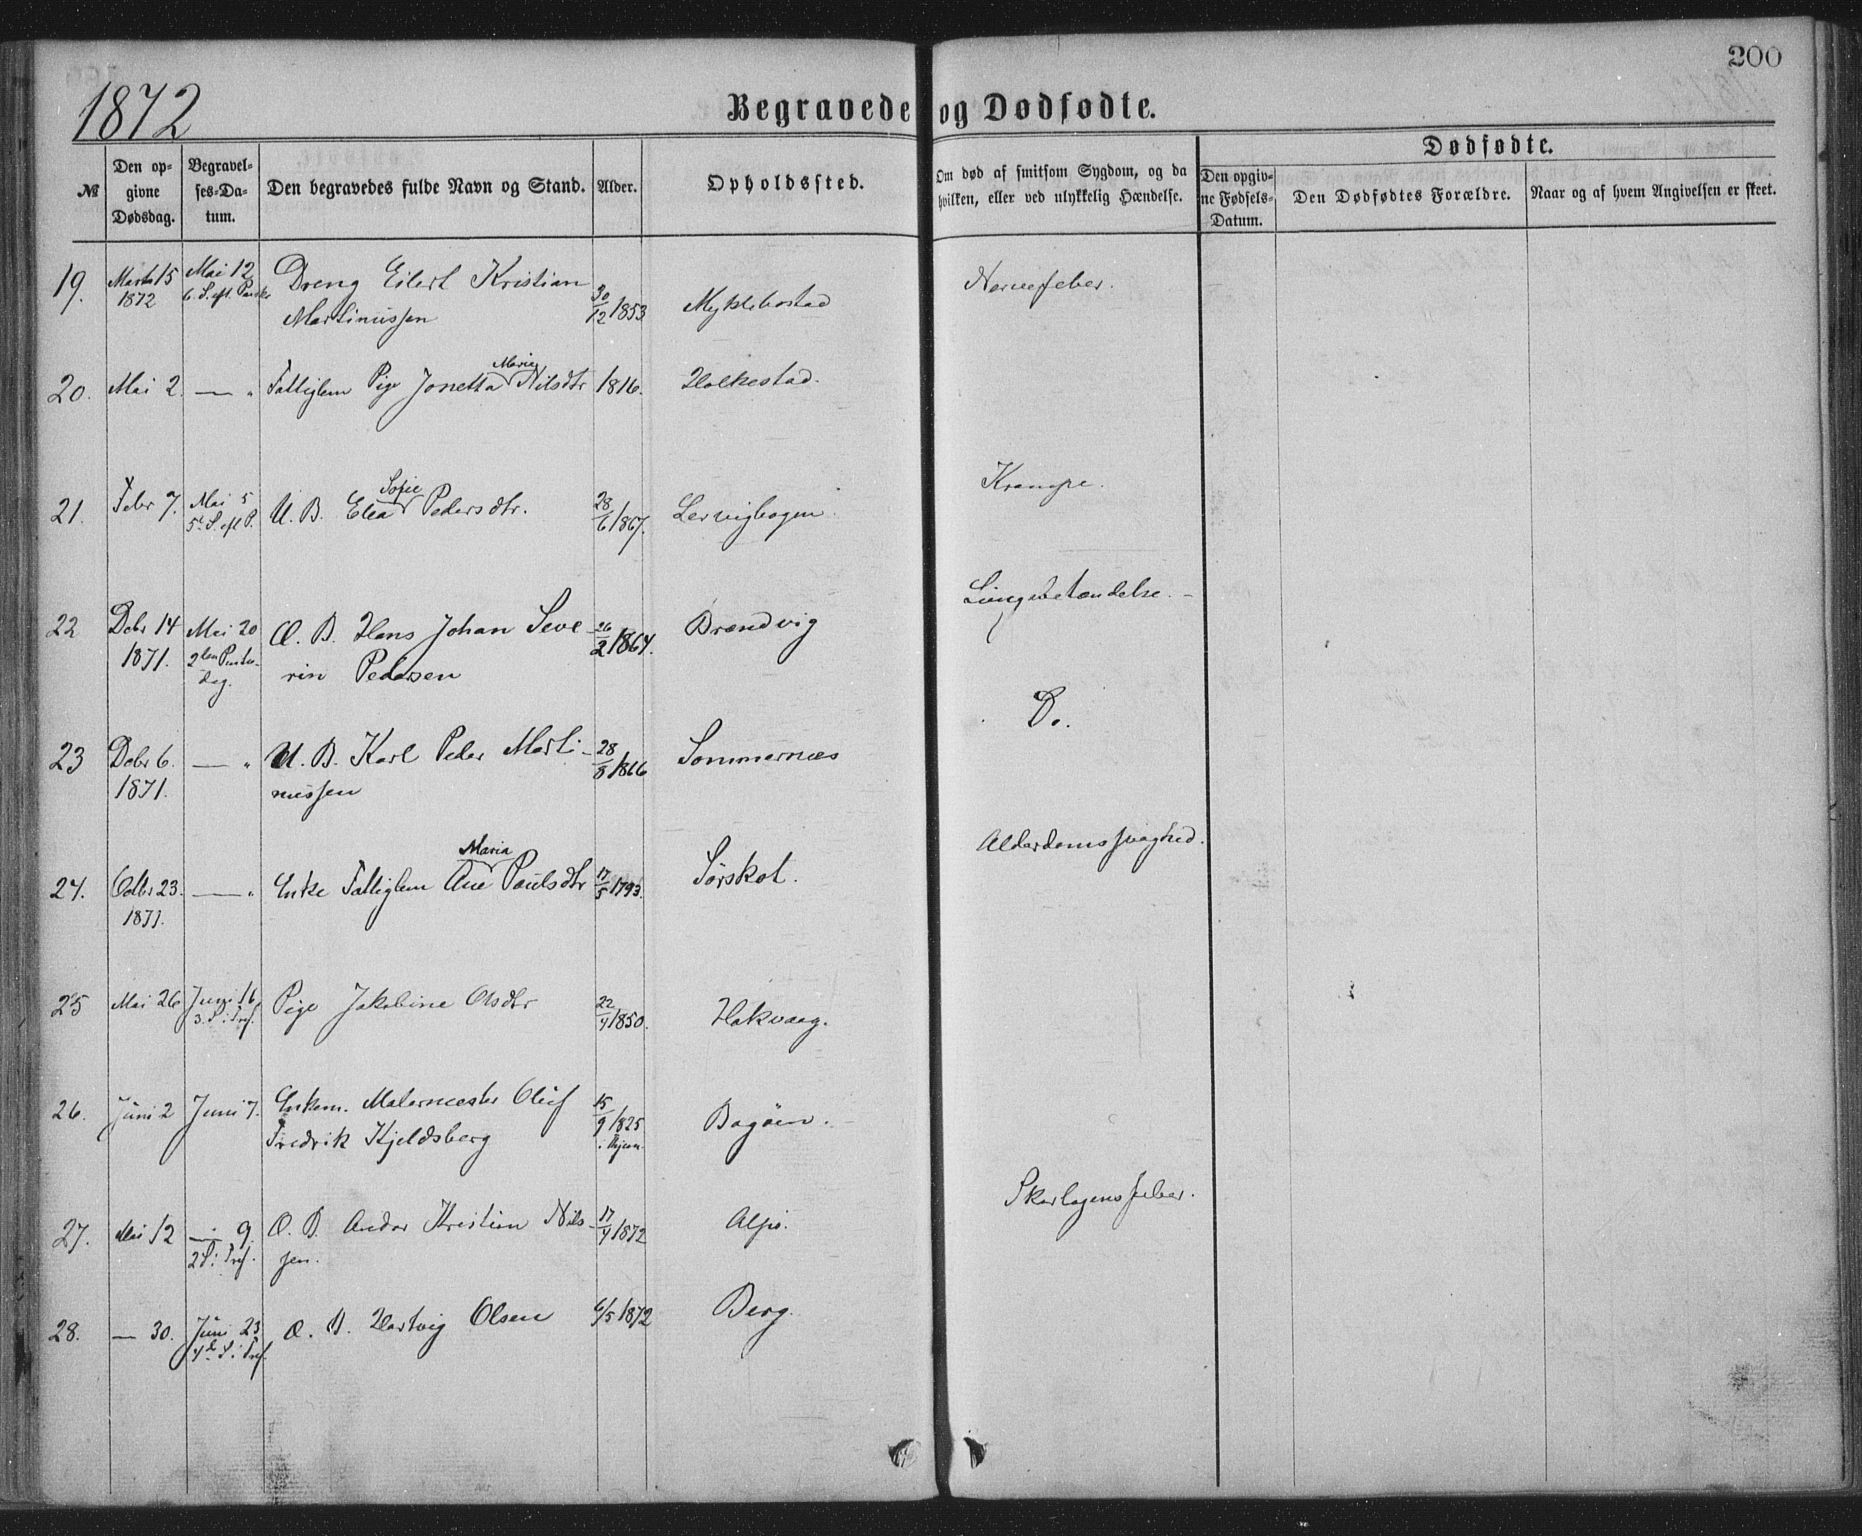 200
1872
Begravede og Dødfødte.
№
Den opgivne Dødsdag.
Begravelses-Datum.
Den begravedes fulde Navn og Stand.
Alder.
Opholdssted.
Om død af smitsom Sygdom, og da hvilken, eller ved ulykkelig Hændelse.
Dødfødte.
Den opgivne Fødsels-Datum.
Den Dødfødtes Forældre.
Naar og af hvem Angivelsen er skeet.
19. Marts 15 Mai 12 Dreng Eilert Kristian 30/12 1853 Myklebostad Nervefeber.
1872 6. S. eft. Paaske Martinussen
20. Mai 2. — „ Fattiglem Pige Jonetta Marie Nilsdtr 1816. Holkestad.
21. Febr 7. Mai 5 U. B. Elea Sofie Pedersdtr. 28/6 1867. Lervigbogen Krampe.
5te S. eft P.
22 Debr 14 Mai 20 Æ. B. Hans Johan Seve- 26/2 1864. Brændvig Lungebetændelse.
1871. 2den Pintsedag. rin Pedersen
23 Debr 6. — „ U. B. Karl Peder Marti- 28/8 1866 Sommernæs D.
1871. nussen
24. Octbr 23. — „ Enke Fattiglem Ane Maria Paulsdtr 17/5 1793. Sørskot. Alderdomssvaghed.
1871.
25 Mai 26 Juni 16 Pige Jakobine Olsdtr 22/4 1850. Hakvaag.
3. S. i Tref.
26. Juni 2 Juni 7. Enkem. Oluf 15/9 1825 Bogöen.
Fredrik Kjeldsberg
27. Mai 12 — 9. Æ. B. Andor Kristian Nils- 17/4 1872 Skarlagensfeber.
2 S. i Tref. sen.
28. — 30. Juni 23 Æ. B. Hartvig Olsen 6/5 1872 Berg.
4de S. i Tref.